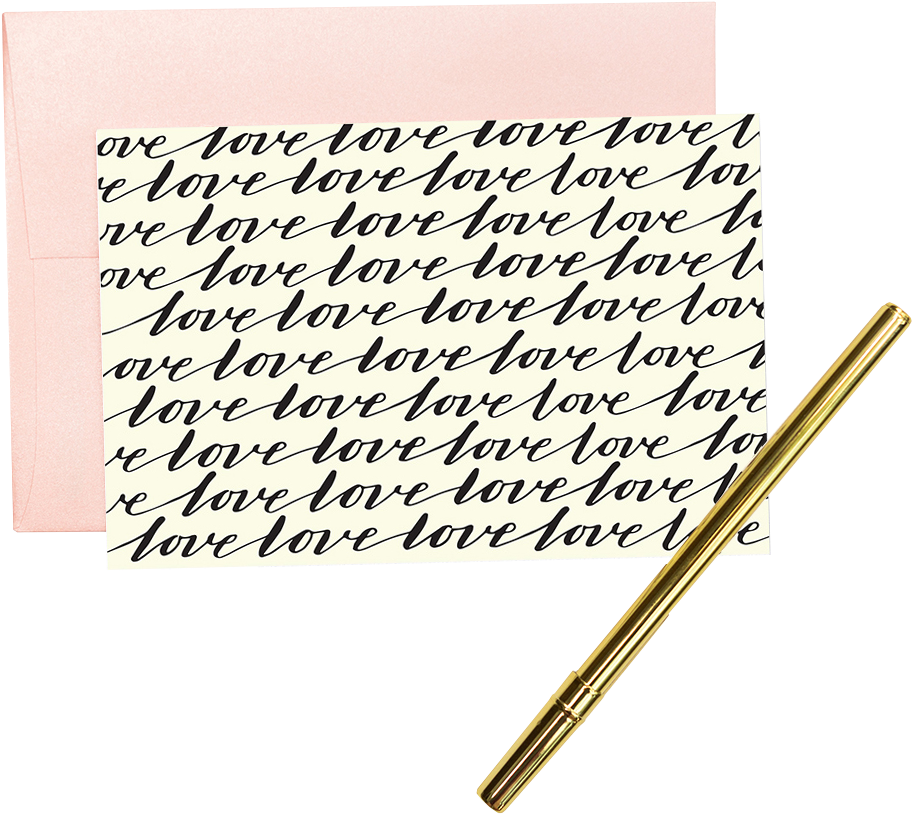 ove love love love love l
e love love love love lov
ove love love love love lo
ove love love love love lo
love love love love love
ove love love love love l
love love love love love
ve love love love love lov
ve love love love love l
love love love love l e